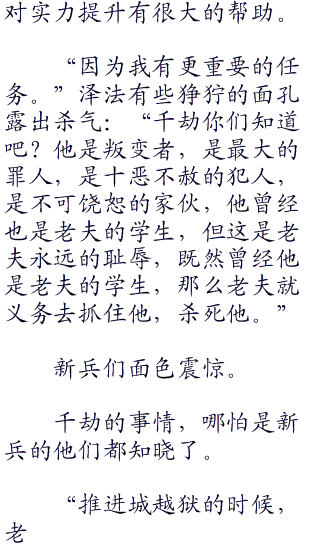 对实力提升有很大的帮助。
“因为我有更重要的任
务。”泽法有些狰狞的面孔
露出杀气：“千劫你们知道
吧？他是叛变者，是最大的
罪人，是十恶不赦的犯人，
是不可饶恕的家伙，他曾经
也是老夫的学生，但这是老
夫永远的耻辱，既然曾经他
是老夫的学生，那么老夫就
义务去抓住他，杀死他。”
新兵们面色震惊。
千劫的事情，哪怕是新
兵的他们都知晓了。
“推进城越狱的时候，
老